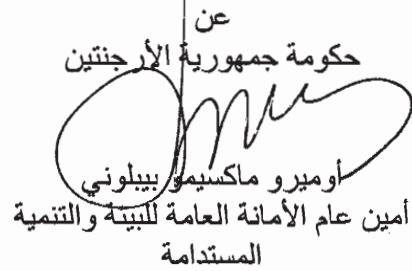 عن
حكومة جمهورية الأرجنتين
أوميرو ماكسيمو بيبلوني
أمين عام الأمانة العامة للبيئة والتنمية
المستدامة